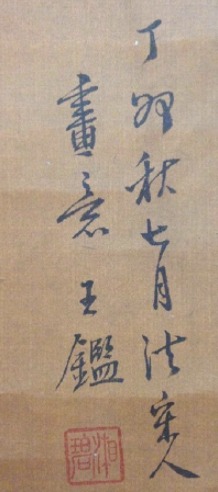 丁卯秋七月法宋人
畫意王鑑
湘碧